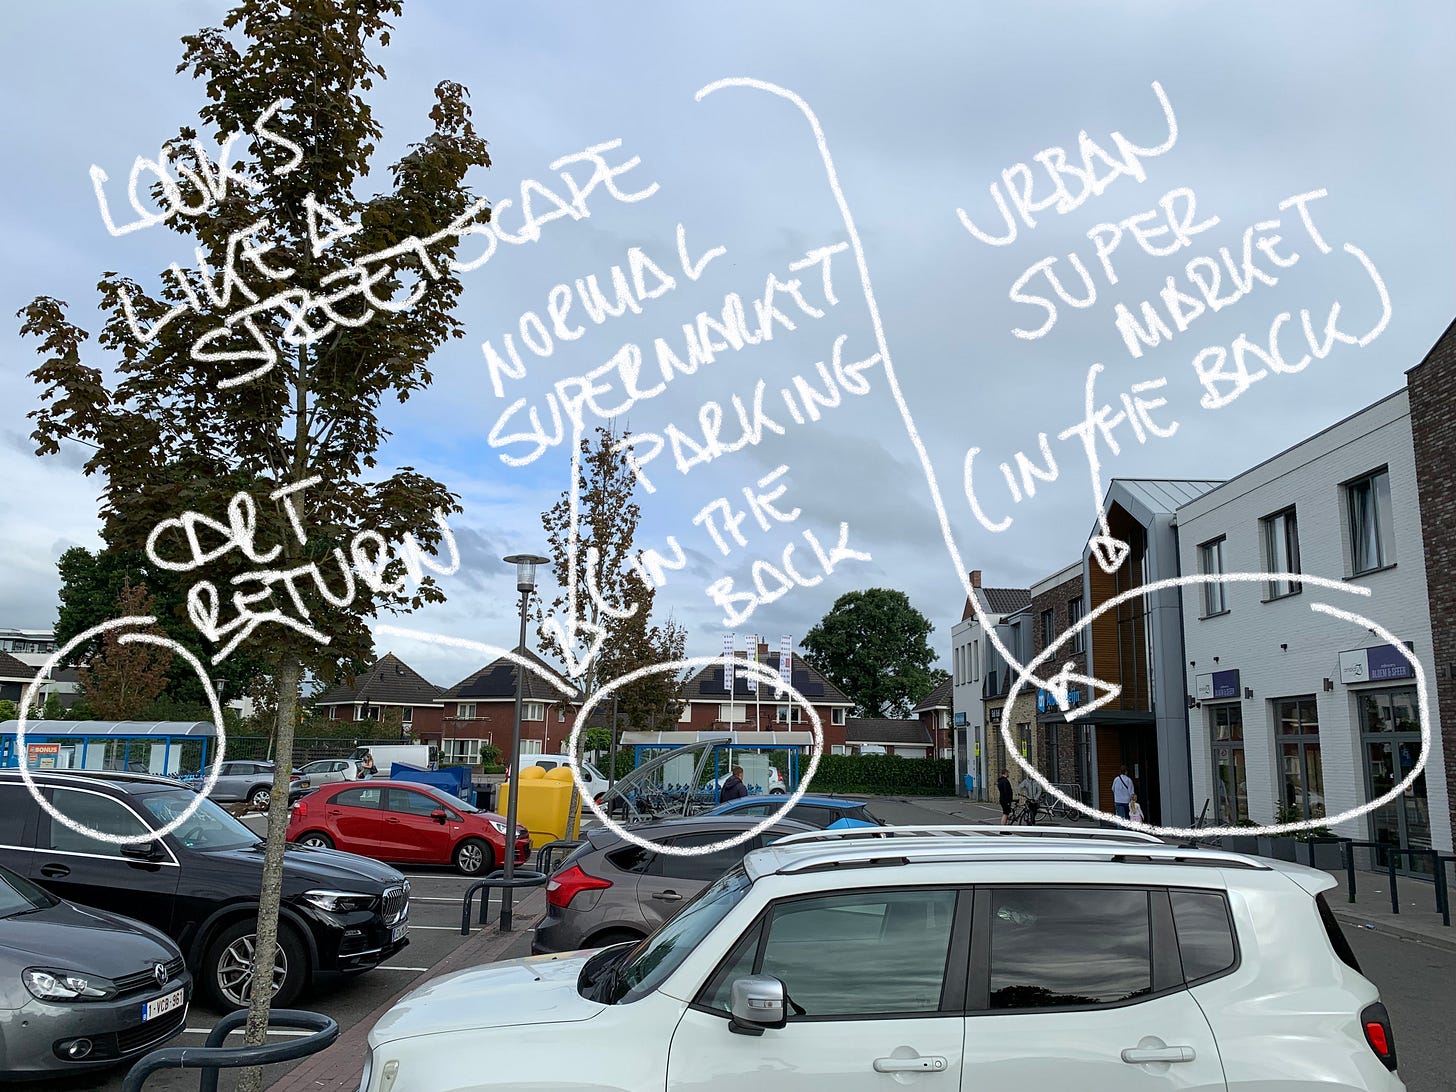 LOOKS
LIKE A
STREETSCAPE
NORMAL
SUPERMARKT
PARKING
(IN THE
BACK
URBAN
SUPER
MARKET
(IN THE BACK)
CART
RETURN
BONUS
BLOEM & SFEER
1-VCB-961